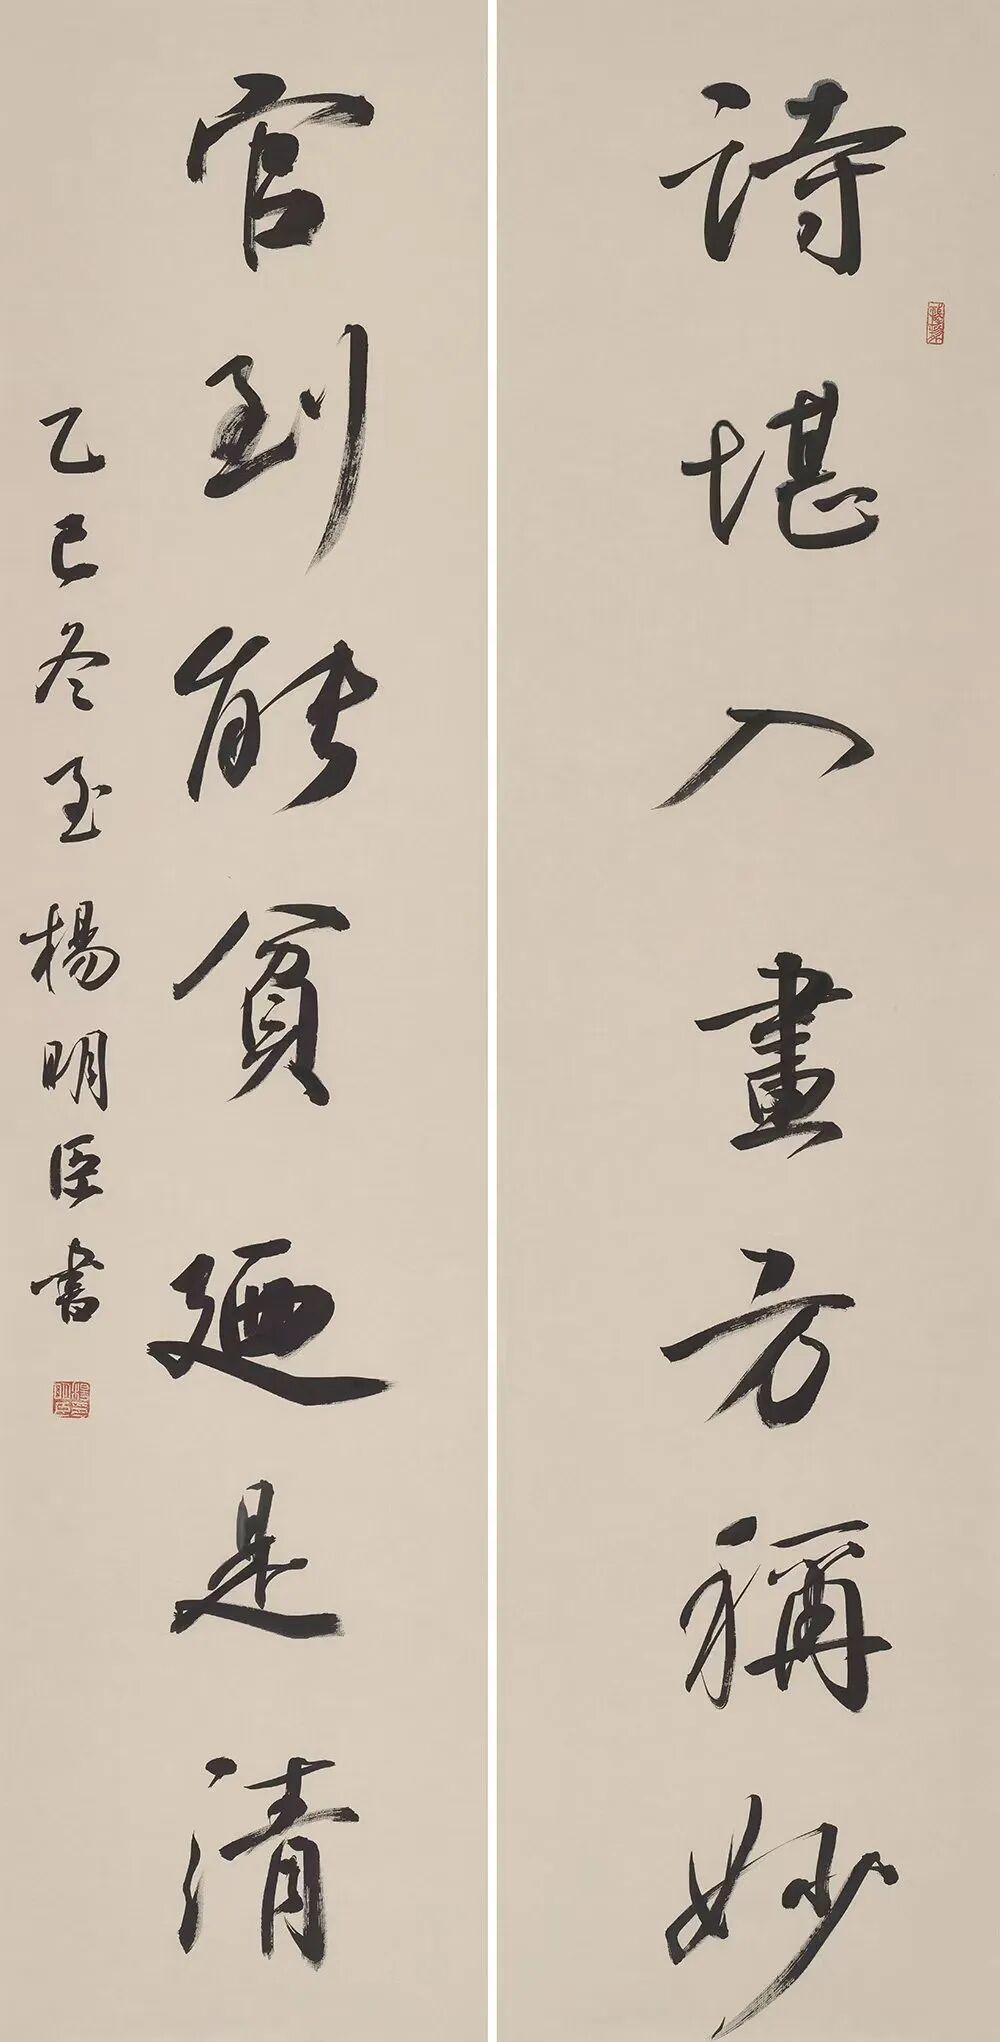 詩堪入畫方稱妙
官到能貧廼是清
乙巳冬至楊明臣書